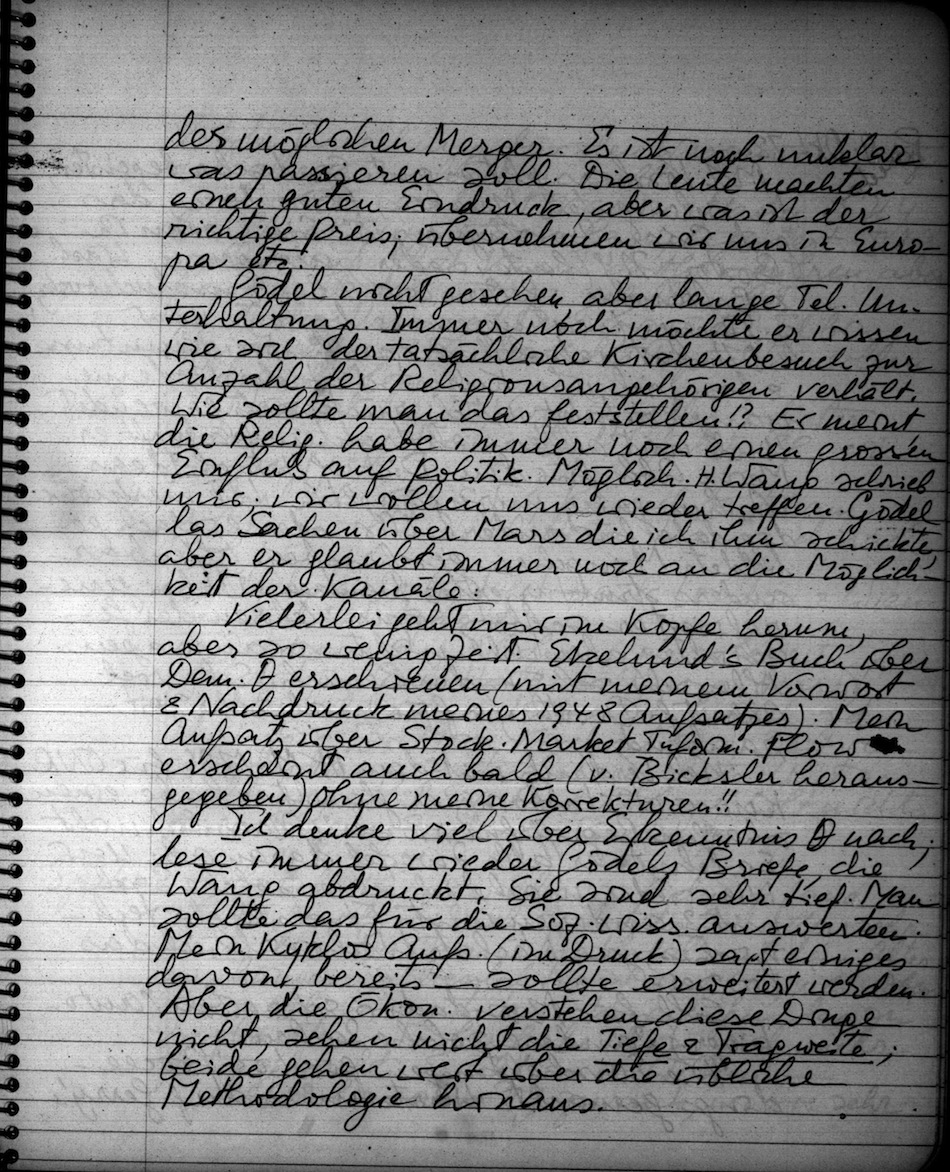 des möglichen Merger. Es ist noch unklar
was passieren soll. Die Leute machten
einen guten Eindruck, aber was ist der
richtige Preis; übernehmen wir uns in Euro-
pa etc.
Gödel nicht gesehen aber lange Tel. Un-
terhaltung. Immer noch möchte er wissen
wie sich der tatsächliche Kirchenbesuch zur
Anzahl der Religionsangehörigen verhält.
Wie sollte man das feststellen!? Er meint
die Relig. habe immer noch einen grossen
Einfluß auf Politik. Möglich. H. Wang schrieb
mir, wir wollen uns wieder treffen. Gödel
las Sachen über Mars die ich ihm schickte
aber er glaubt immer noch an die Möglich-
keit der Kanäle.
Vielerlei geht mir im Kopfe herum,
aber so wenig Zeit. Ekelund's Buch über
Dem. θ erschienen (mit meinem Vorwort
& Nachdruck meines 1948 Aufsatzes). Mein
Aufsatz über Stock. Market Inform. Flow
erscheint auch bald (v. Bicksler heraus-
gegeben) ohne meine Korrekturen!!
Ich denke viel über Erkenntnis θ nach;
lese immer wieder Gödels Briefe, die
Wang abdruckt. Sie sind sehr tief. Man
sollte das für die Soz. wiss. auswerten.
Mein Kyklos Aufs. (im Druck) sagt einiges
davon bereits — sollte erweitert werden.
Aber die Ökon. verstehen diese Dinge
nicht, sehen nicht die Tiefe & Tragweite;
beide gehen weit über die übliche
Methodologie hinaus.